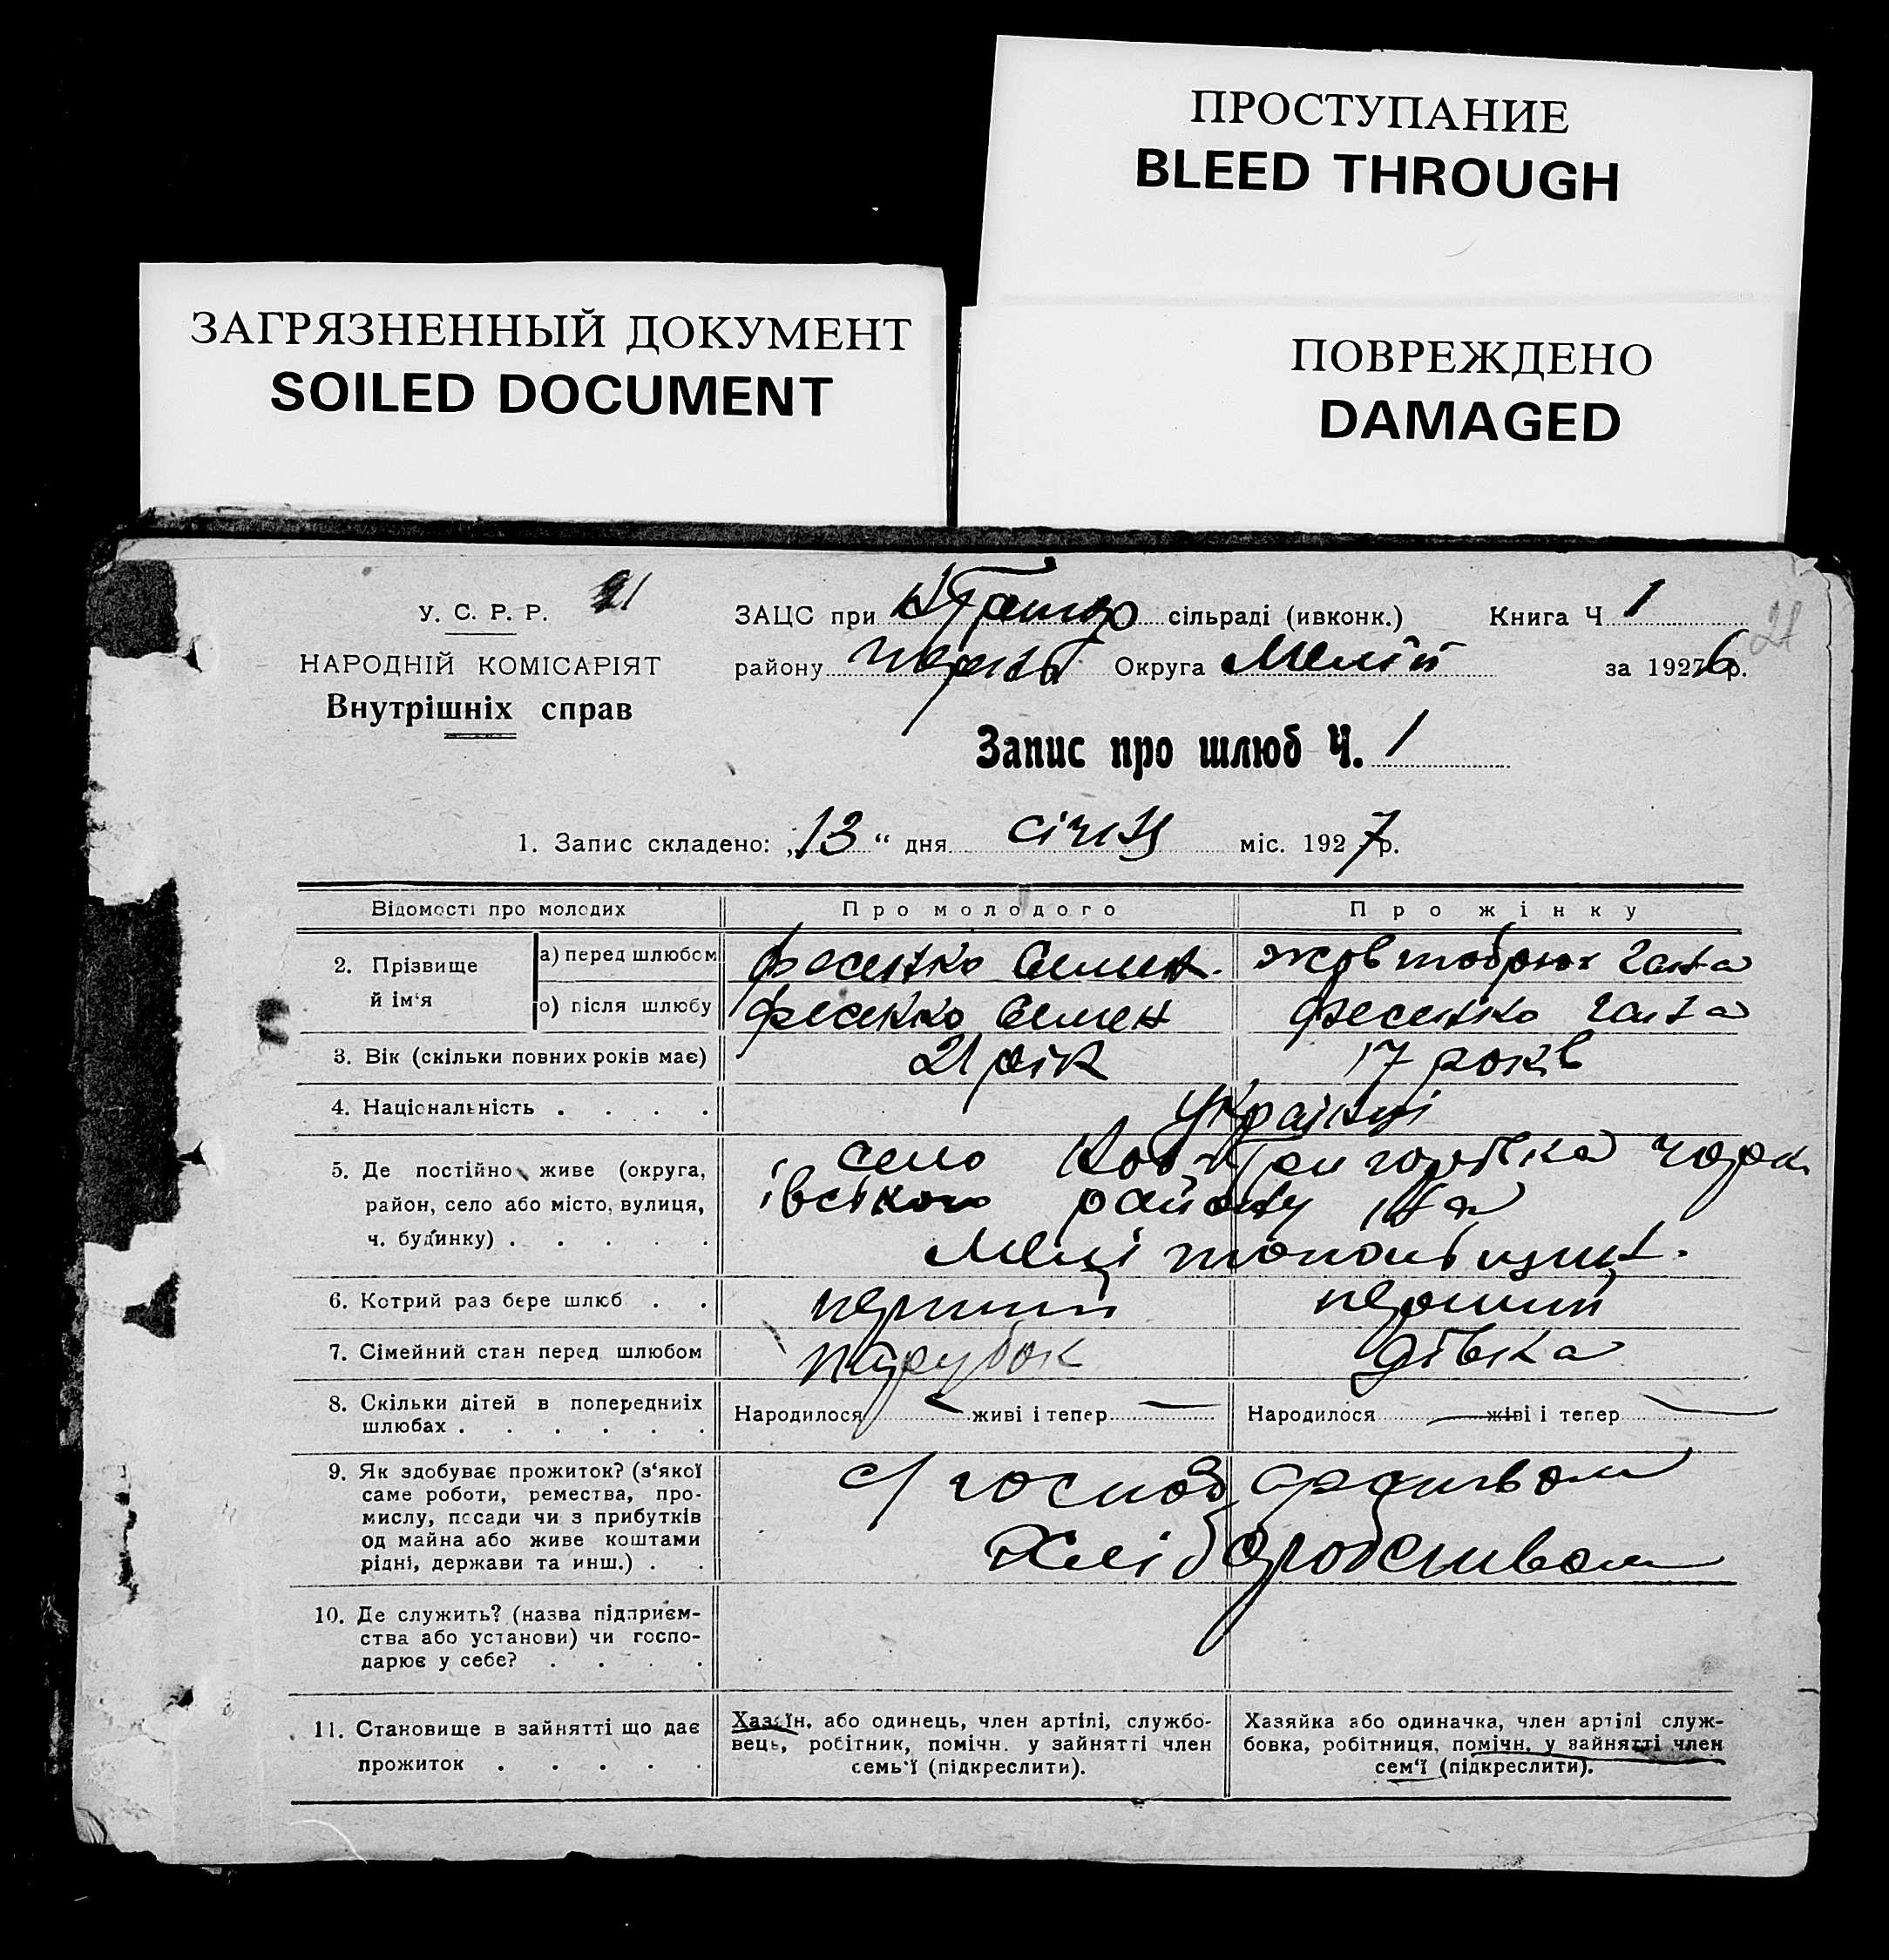 ПРОСТУПАНИЕ
BLEED THROUGH
ЗАГРЯЗНЕННЫЙ ДОКУМЕНТ
SOILED DOCUMENT
ПОВРЕЖДЕНО
DAMAGED
У. С. Р. Р. 21
НАРОДНІЙ КОМІСАРІЯТ
Внутрішніх справ
ЗАЦС при сільраді (ивконк.) Книга Ч 1 21
району Округа Меліт за 1926 р.
Запис про шлюб Ч. 1
1. Запис складено: „13“ дня січня міс. 1927 р.
Відомості про молодих Про молодого Про жінку
2. Прізвище й ім‘я
а) перед шлюбом Фесенко Семен. Жовтобрюх Ганна
о) після шлюбу Фесенко Семен Фесенко Ганна
3. Вік (скільки повних років має) 21 рік 17 років
4. Національність . . . . українці
5. Де постійно живе (округа,
район, село або місто, вулиця,
ч. будинку) . . . . .
село Ново Григорівка
івського району на
Мелітопольщині.
6. Котрий раз бере шлюб . . перший перший
7. Сімейний стан перед шлюбом парубок дівка
8. Скільки дітей в попередниіх
шлюбах . . . . . .
Народилося — живі і тепер — Народилося — живі і тепер —
9. Як здобуває прожиток? (з‘якої
саме роботи, ремества, про-
мислу, посади чи з прибутків
од майна або живе коштами
рідні, держави та инш.) . .
с/господарством
Хліборобством
10. Де служить? (назва підприєм-
ства або установи) чи госпо-
дарює у себе? . . . .
11. Становище в зайнятті що дає
прожиток . . . . .
Хазяїн, або одинець, член артілі, службо-
вець, робітник, помічн. у зайнятті член
семь‘ї (підкреслити).
Хазяйка або одиначка, член артілі служ-
бовка, робітниця, помічн. у зайнятті член
сем‘ї (підкреслити).